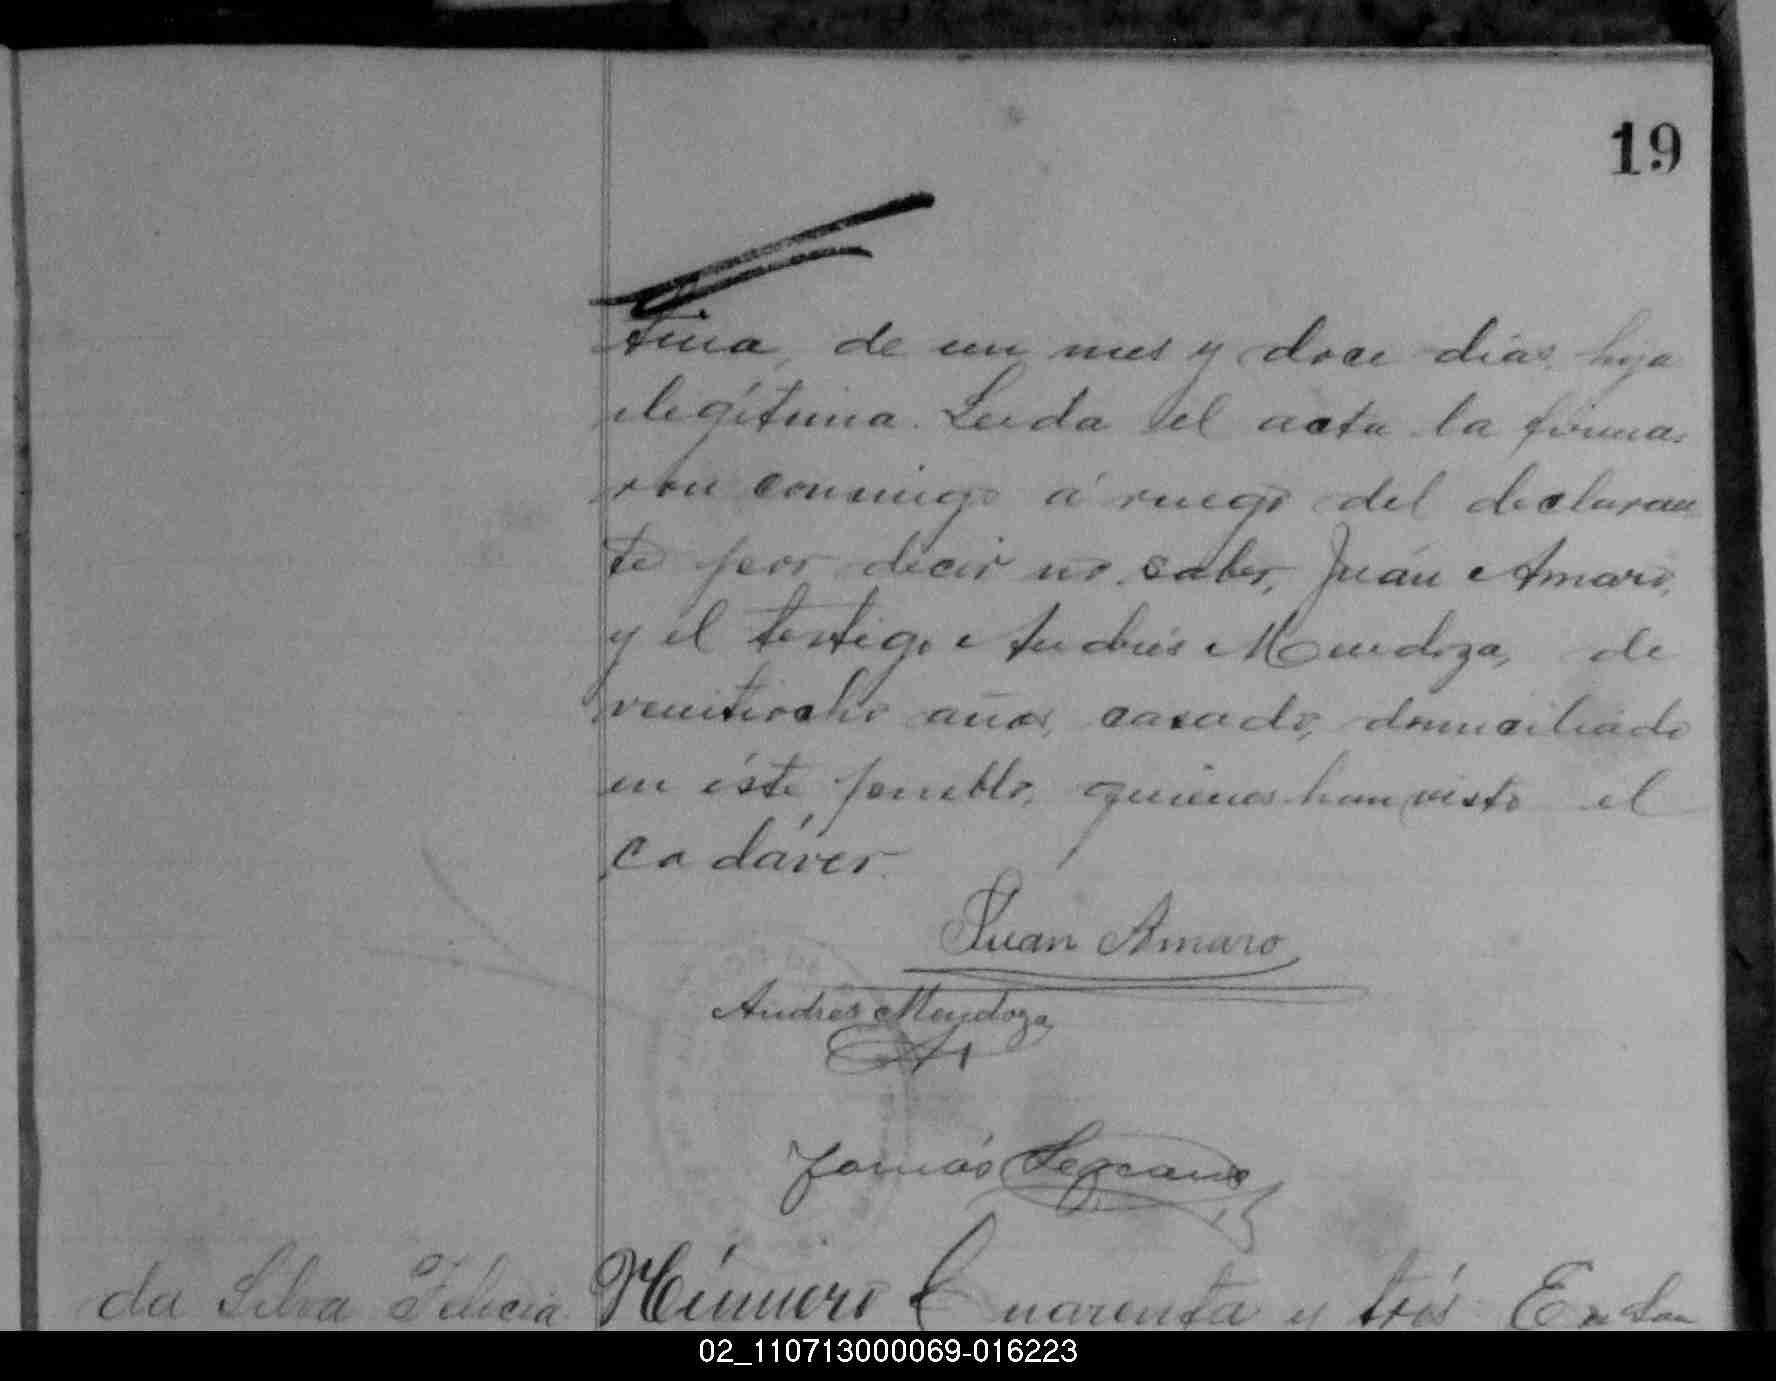 19
tina, de un mes y doce días, hija
ilegítima. Leida el acta la firma-
ron conmigo á ruego del declaran
te por decir no saber, Juán Amaro,
y el testigo Andrés Mendoza, de
veintiocho años, casado, domiciliado
en éste pueblo, quienes han visto el
cadáver.
Juan Amaro
Andres Mendoza
Tomás
da Silva Felicia
Número Cuarenta y trés En San
02_110713000069-016223